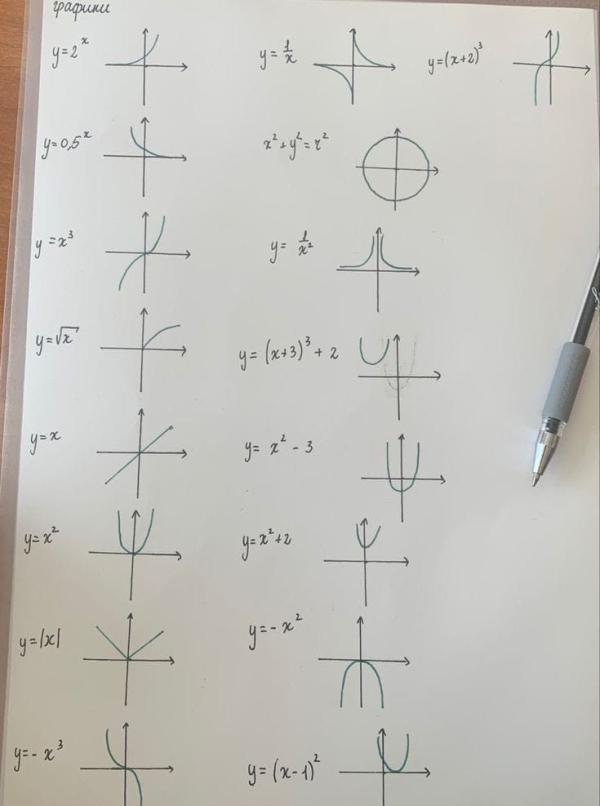 графики
y=2^x
y=0,5^x
y=x^3
y=√x
y=x
y=x^2
y=|x|
y=-x^3
y=1/x
x^2+y^2=r^2
y=1/x^2
y=(x+3)^3+2
y=x^2-3
y=x^2+2
y=-x^2
y=(x-1)^2
y=(x+2)^3